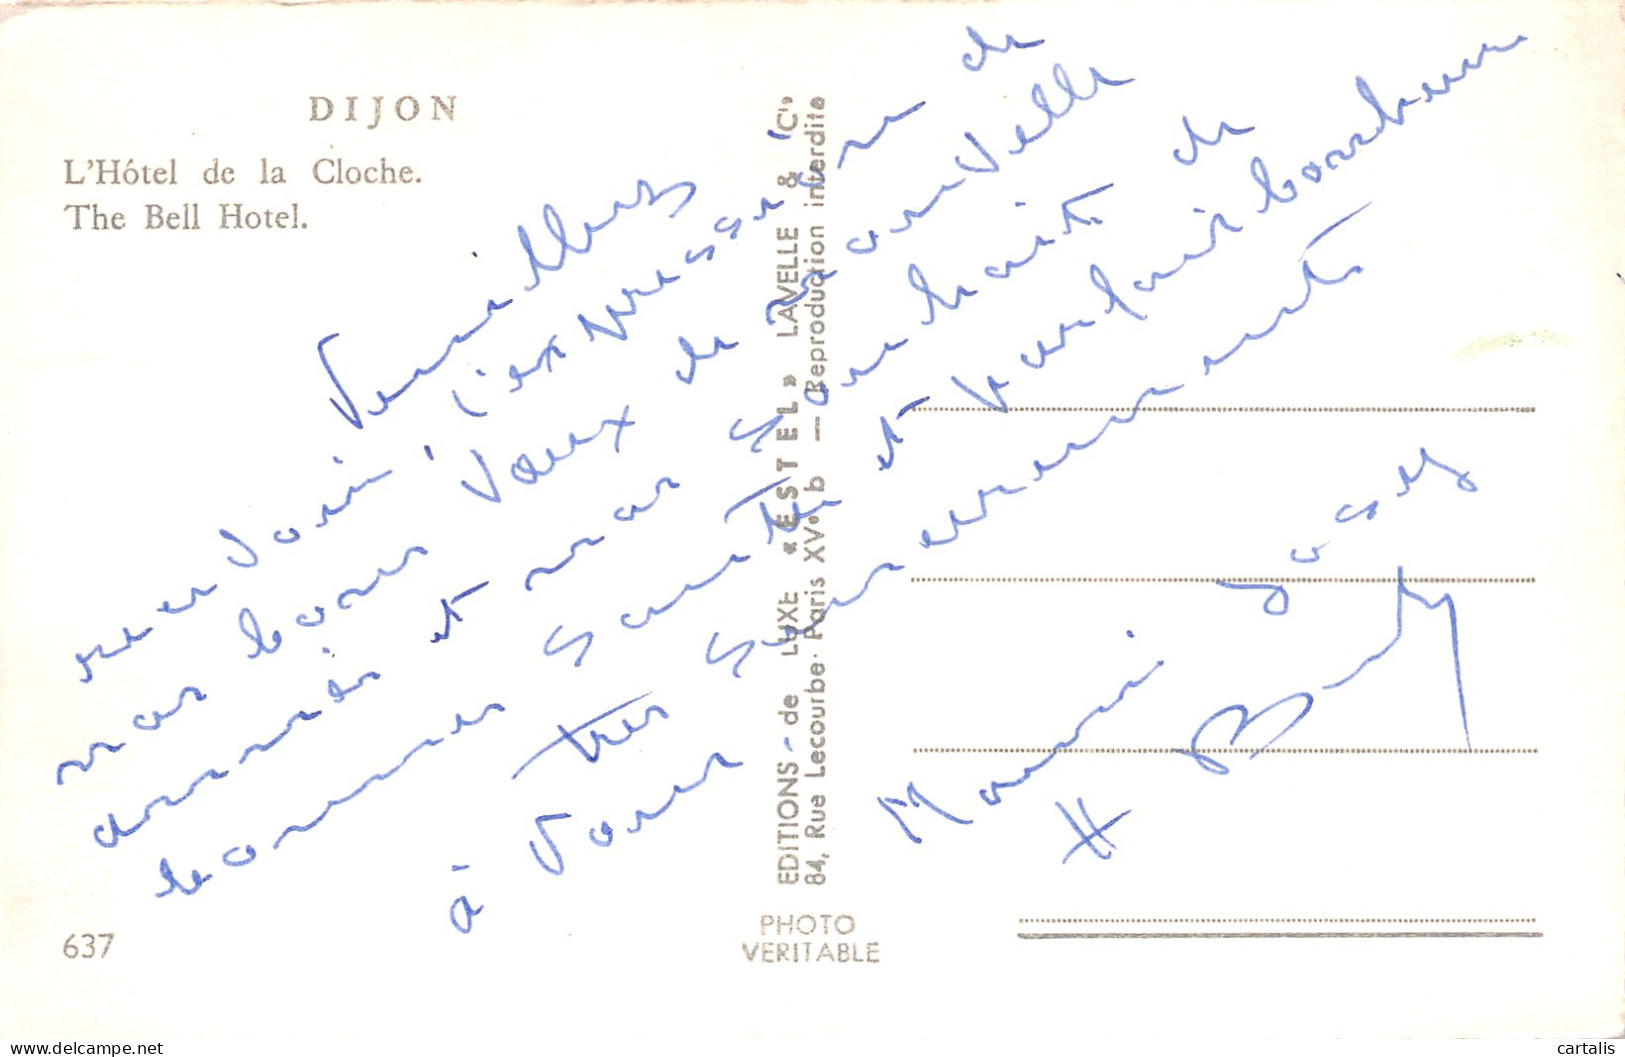 DIJON
L'Hôtel de la Cloche.
The Bell Hotel.
Veuillez
recevoir l'expression de
nos bons voeux de nouvelle
année et nos souhaits de
bonnes santés et parfait bonheur
très sincèrement
à vous
EDITIONS de LUXE « ESTEL » LAVELLE & Cie
84, Rue Lecourbe Paris XVe b — Reproduction interdite
H
637
PHOTO
VERITABLE
cartalis
delcampe.net